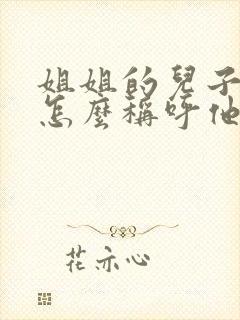 姐姐的兒子
怎麼稱呼他
花亦心